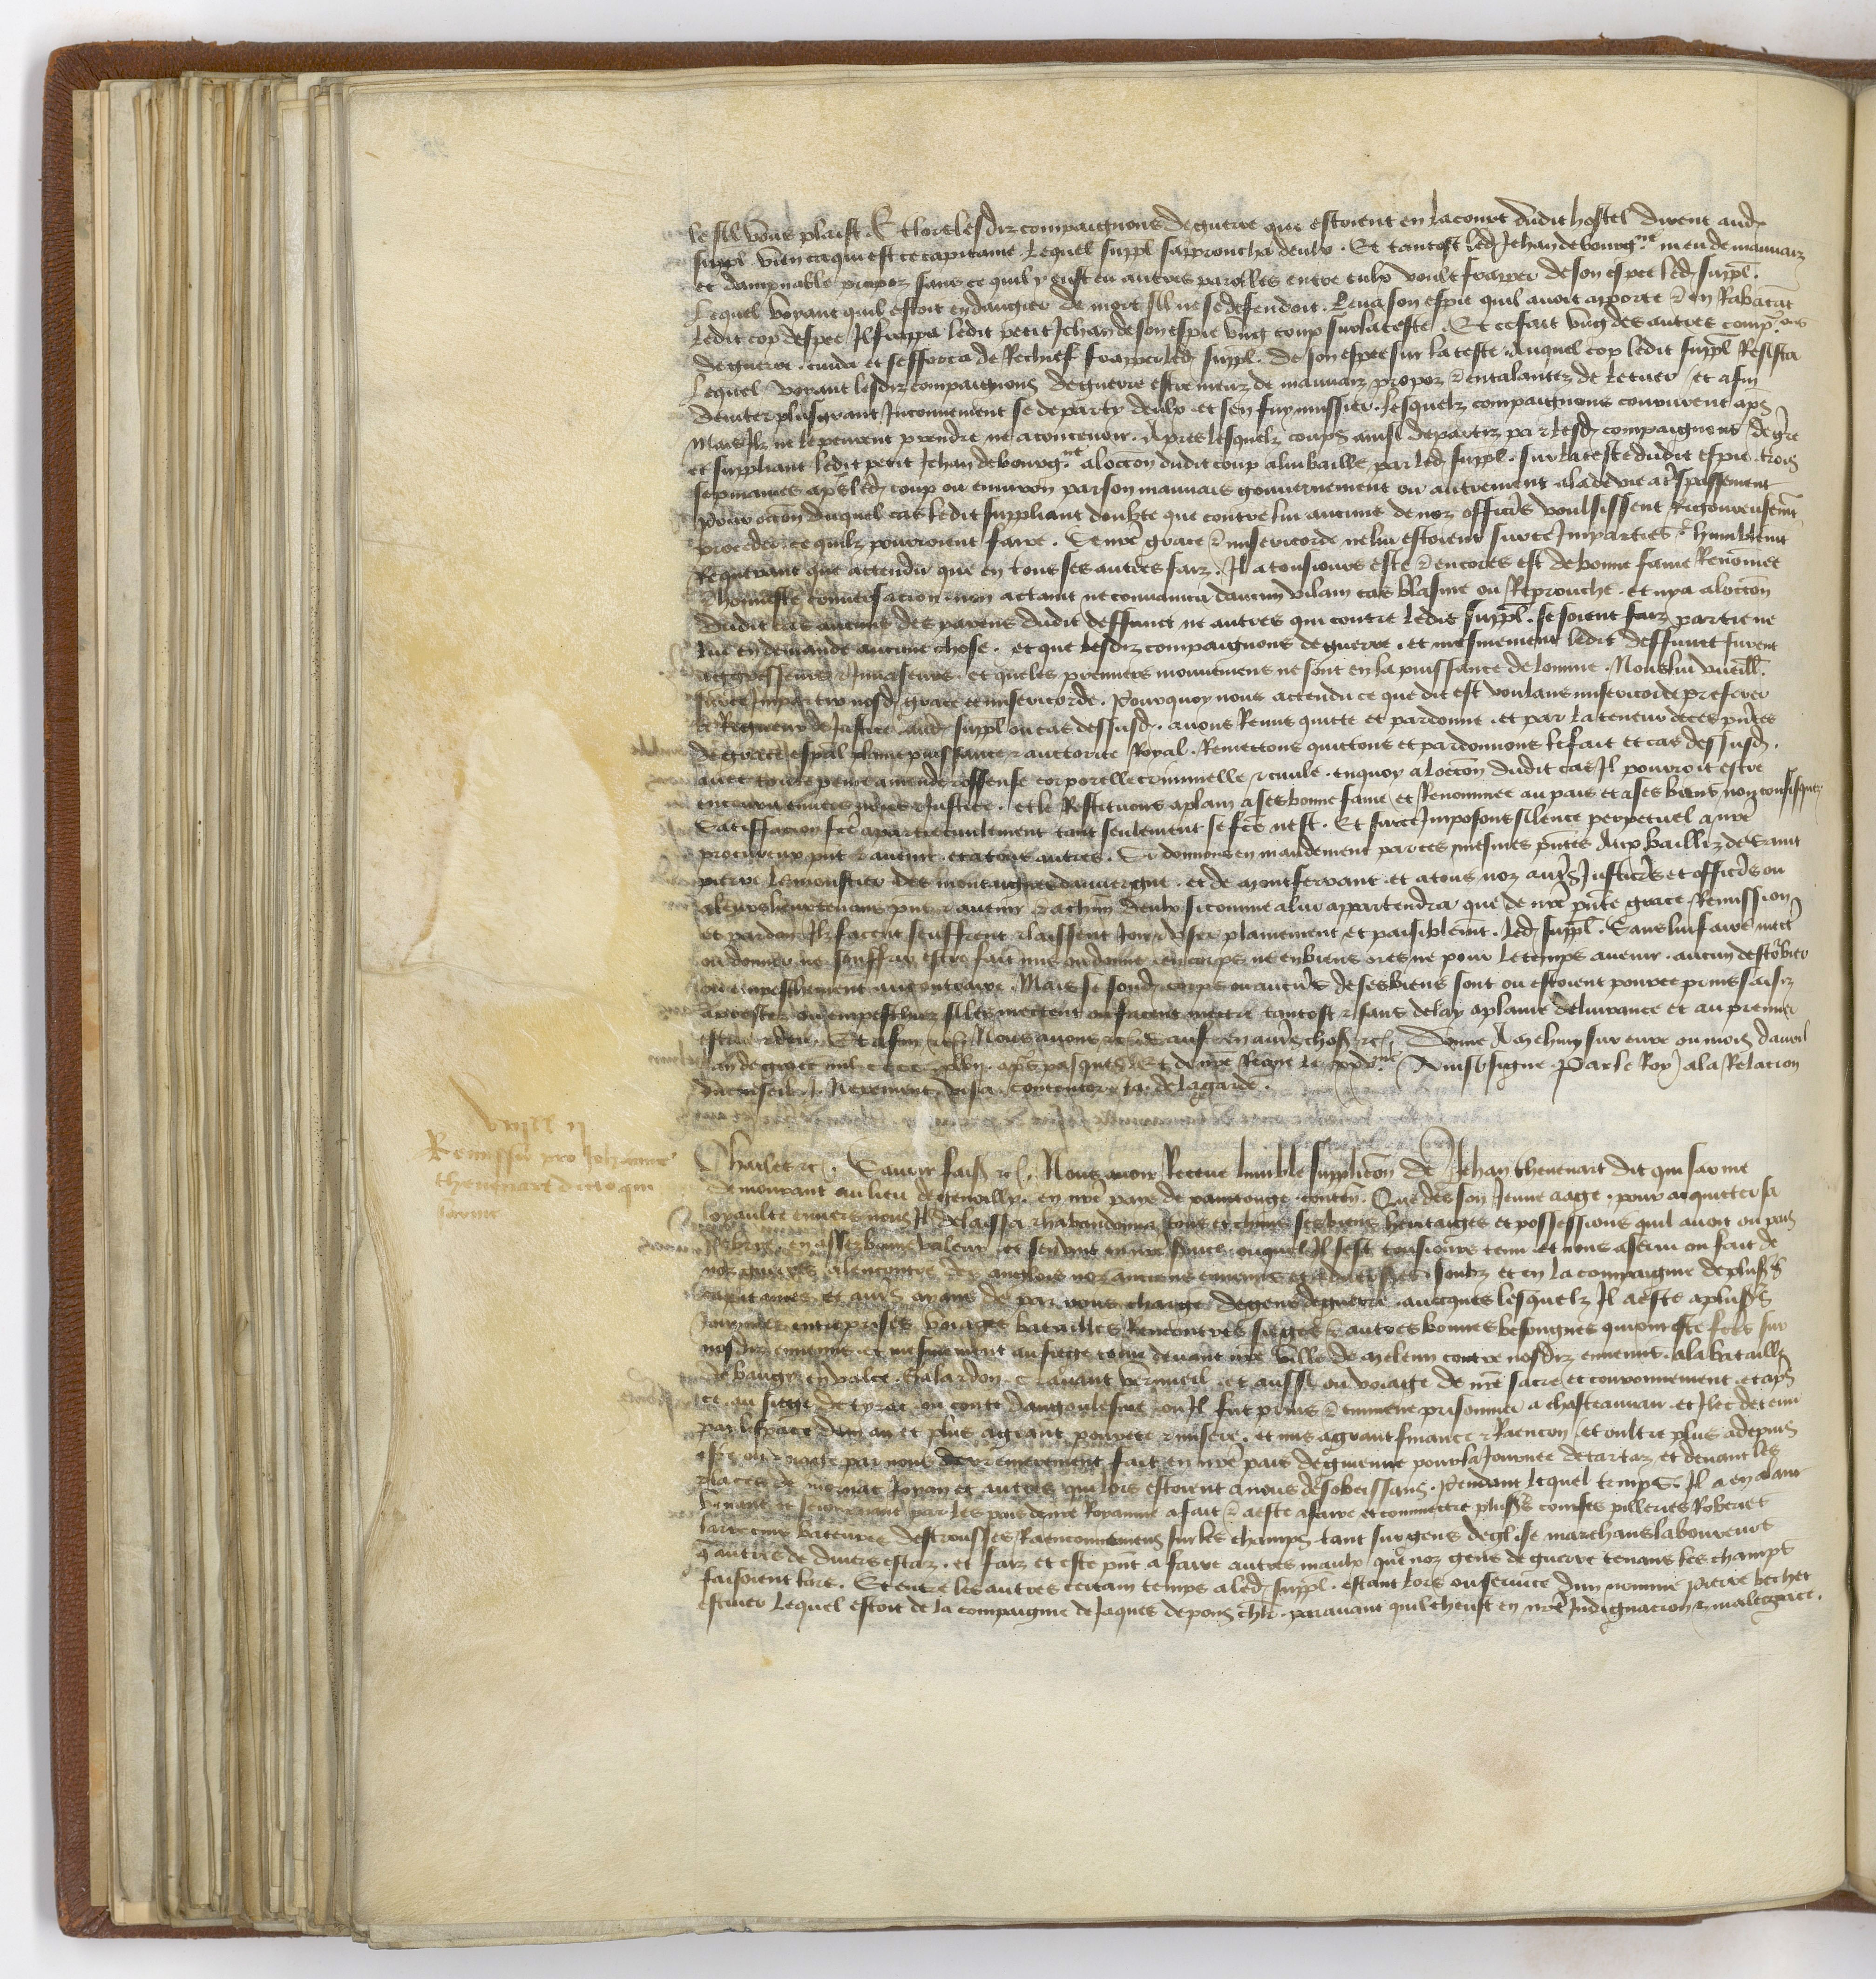 le sil vous plaist. Et lors lesdiz compaignons de guerre que estoient en la court dudit hostel dirent aud.
suppl. vien ca qui est ce capitaine. Lequel suppl. sapproucha deulx. Et tantost led. Jehan de bourgne meu de mauvaiz
et dampnable propoz sans ce quil y eust eu autres parolles entre eulx voult frapper de son espee led. suppl.
Lequel voyant quil estoit en dangier de mort sil ne se defendoit. Leva son espie quil avoit apporte & en Rabatant
ledit cop despee Il frappa ledit petit Jehan de son espie ung coup sur la teste. Et ce fait ung des autres comp.ons
de guerre. cuida et sefforca de Rechief frapper led. suppl. de son espee sur la teste. Auquel cop ledit suppl. Resista
Lequel voyant lesdiz compaignons de guerre estre meuz de mauvaiz propoz & entalantez de le tuer et afin
deviter plus grant Inconvenient se departy deulx et sen fuy mussier. Lesquelz compaignons coururent aps
Mais Ilz ne le peurent prendre ne aconcevoir. Apres lesquelz coups ainsi departiz par lesd. compaignons de gre
et suppliant ledit petit Jehan de bourgne a loccon dudit coup a lui baille par led. suppl. sur la teste dudit espie. trois
sepmaines aps led. coup ou environ par son mauvais gouvernement ou autrement ala de vie a trespassement
Pour occon duquel cas ledit suppliant doubte que contre lui aucuns de noz officiers voulsissent Rigoureusemt
proceder ce quilz pourroient faire. Se nre grace & misericorde ne lui estoient sur ce Imparties. humblemt
Requerant que attendu que en tous ses autres faiz. Il a tousiours este & encores est de bonne fame Renommee
& honneste conversacion non actaint ne convaincu daucun vilain cas blasme ou Reprouche. et nya a loccon
dudit cas aucuns des parens dudit deffunct ne autres qui contre ledit suppl. se soient faiz partie ne
lui en demande aucune chose. et que lesdiz compaignons de guerre. et mesmement ledit deffunct furent
aggresseurs & Invaseurs. et que les premiers mouvemens ne sont en la puissance de lomme. Nous lui vueill.
sur ce Impartir nosd. grace et misericorde. Pourquoy nous attendu ce que dit est voulans misericorde preferer
a Rigueur de Justice aud. suppl. ou cas dessusd. avons Remis quitte et pardonne. et par la teneur de ces pntes
de grace espal plaine puissance & auctorite Royal. Remettons quittons et pardonnons le fait et cas dessusd.
avec toute peine amende & offense corporelle criminelle & civile. en quoy a loccon dudit cas Il pourroit estre
encouru envers nous & Justice. et le Restituons a plain a ses bonne fame et Renommee au pais et a ses biens non confisquez
Satiffacion fte a partie civilement tant seulement se fte nest. Et sur ce Imposons silence perpetuel a nre
procureur pnt & avenir et a tous autres. Si donnons en mandement par ces mesmes pntes Aux bailliz de saint
pierre le moustier des montaignes dauvergne. et de montferrant. et a tous noz autrs Justiciers et officiers ou
a leurs lieuxtenans pns & avenir & a chun deulx si comme a lui appartendra que de nre pnte grace Remission
et pardon Ilz facent seuffrent & laissent Joir & user plainement et paisiblemt. led. suppl. Sans lui faire mettre
ou donner ne souffrir estre fait mis ou donne en corps ne en biens ores ne pour le temps avenir. aucun destorbier
ou empeschement au contraire. Mais se sond. corps ou aucuns de ses biens sont ou estoient pour ce prins saisiz
arrestez ou empeschiez silz mettent ou facent mettre tantost & sans delay a plaine delivrance et au premier
estat & deu. Et afin &c. Nous avons &c. sauf en autrs choses &c. Donne A mehun sur evre ou mois davril
lan de grace mil cccc xlvii. aps pasques. Et de nre Regne le xxvme. Ainsi signe. Par le Roy a la Relacion
du conseil. J. Nerement. visa. contentor. Ja. de lagarde.

viiixx ii
Remissio pro Johanne
thevenart dicto qui
sarme

Charles &c. Savoir faisons &c. Nous avoir Receue lumble supplicon de Jehan thevenart dit qui sarme
demourant au lieu de genoilly. en nre pays de xanctonge. conten. Que des son Jeune aage. pour acquicter sa
loyaulte envers nous Il delaissa & habandonna tous et chuns ses biens heritaiges et possessions quil avoit ou pais
en assez bonne valeur. et sen vint en nre service. ouquel Il sest tousiours tenu. et nous a servi ou fait de
noz guerres. a lencontre des anglois noz anciens ennemis et adversaires. soubz et en la compaignie de plusrs
capitaines et autrs ayans de par nous charge de gens de guerre. avecques lesquelz Il a este a plusrs
Journees entreprises. voiages batailles Rencontres sieges & autres bonnes besongnes qui ont este ftes sur
nosdiz ennemis. et mesmement au siege tenu devant nre ville de meleun contre nosdiz ennemis. a la bataille
de baugiz en valee. Galardon. Cravant Vernueil. et aussi ou voiage de nre sacre et couronnement. et aps
ce au siege de ou conte dangoulesme. ou Il fut prins & enmene prisonnier a chasteauneuf. et Ilec detenu
par lespace dun an et plus a grant povrete & misere. et mis a grant finance & Raencon et oultre plus a depuis
este ou voiage par nous derrenierement fait en nre pais de guienne pour la Journee de tartaz et devant les
places de mornac Royan et autres qui lors estoient a nous desobeissans. Pendant lequel temps. Il a en alant
venant et sejournant par les pais de nre Royaume a fait & a este a faire et commectre plusrs courses pilleries Roberies
larrecins bateures destrousses Raenconnemens sur les champs. tant sur gens deglise marchans laboureurs
q autres de divers estaz. et faiz et este pnt a faire autres maulx que noz gens de guerre tenans les champs
faisoient lors. Et entre les autres certain temps a led. suppl. estant lors ou service dun nomme pierre bechet
escuier Lequel estoit de la compaignie de Jaques de pons chlr. paravant quil cheust en nre Indignacion & malegrace.